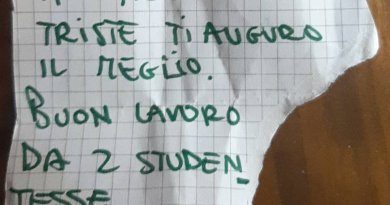 TRISTE TI AUGURO
IL MEGLIO.
BUON LAVORO
DA 2 STUDEN
TESSE